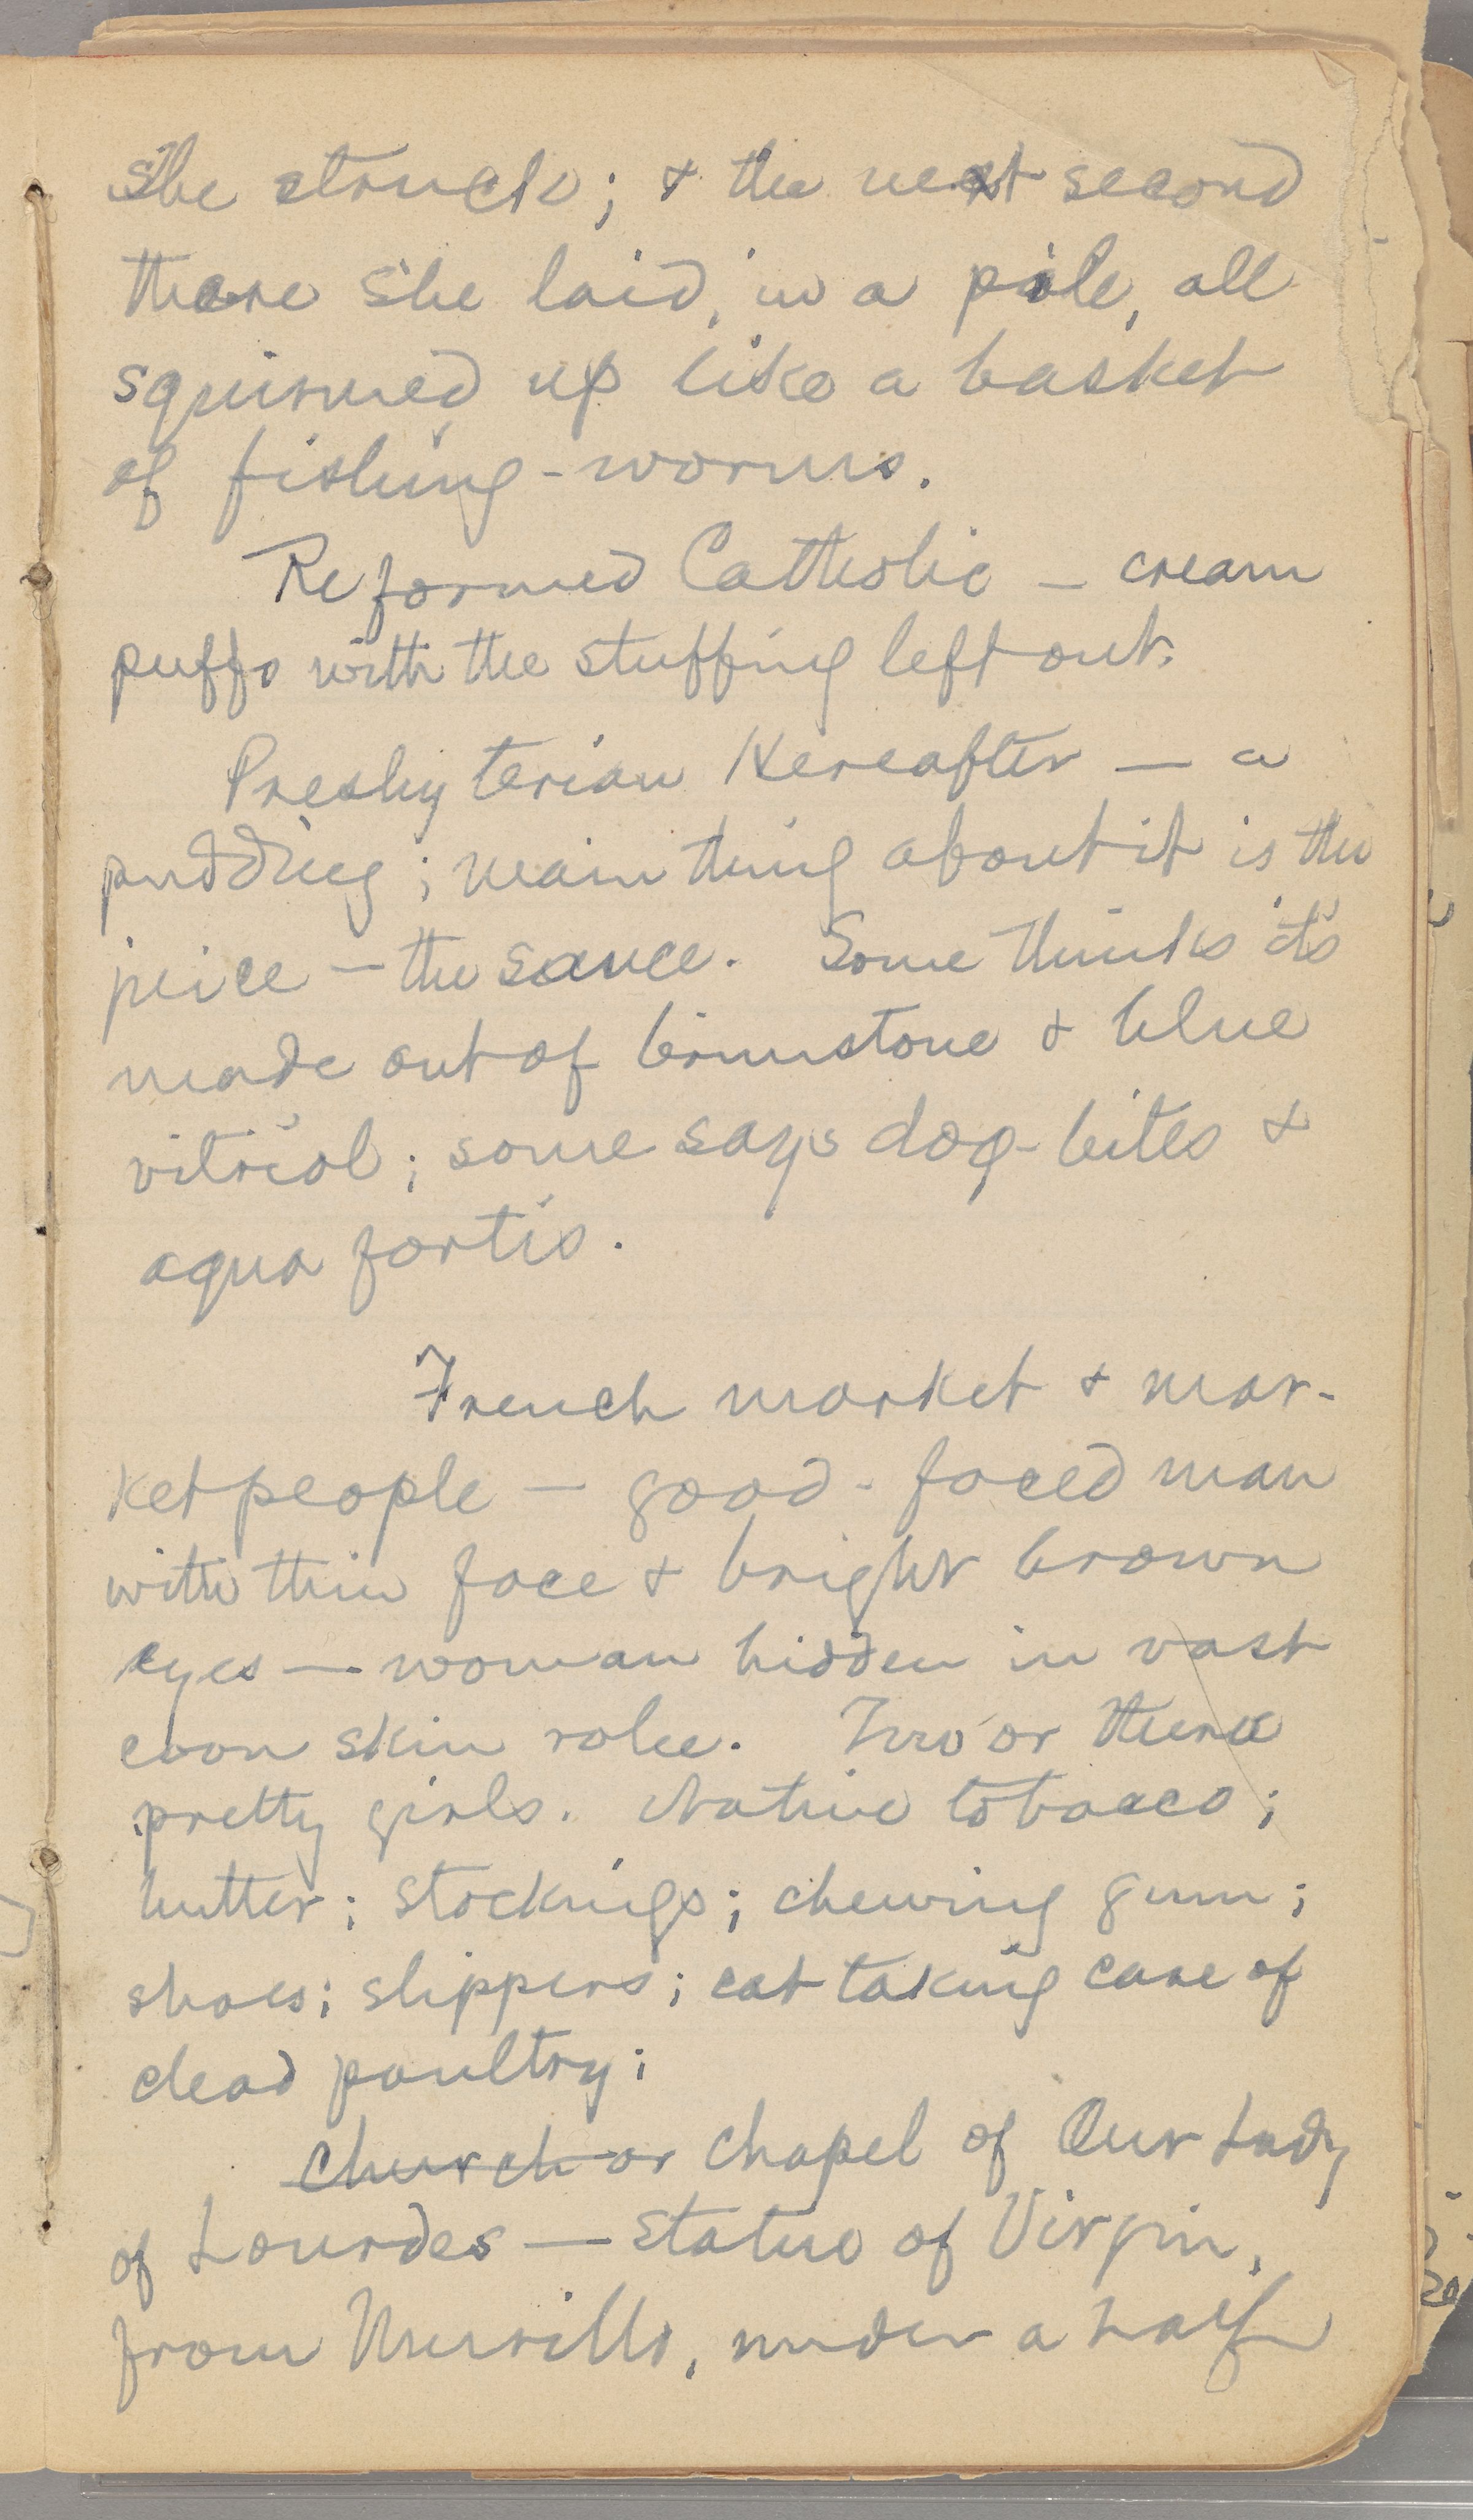 She struck; & the next second
there she laid, in a pile, all
squirmed up like a basket
of fishing-worms.
Reformed Catholic — cream
puffs with the stuffing left out.
Presbyterian Hereafter — a
pudding; main thing about it is the
juice — the sauce. Some thinks it's
made out of brimstone & blue
vitriol; some says dog-bites &
aqua fortis.
French market & mar-
ket people — good-faced man
with thin face & bright brown
eyes — woman hidden in vast
coon skin robe. Two or three
pretty girls. Native tobacco;
butter; stockings; chewing gum;
shoes; slippers; cat taking care of
dead poultry;
Church or chapel of Our Lady
of Lourdes — statue of Virgin,
from Murillo, under a half